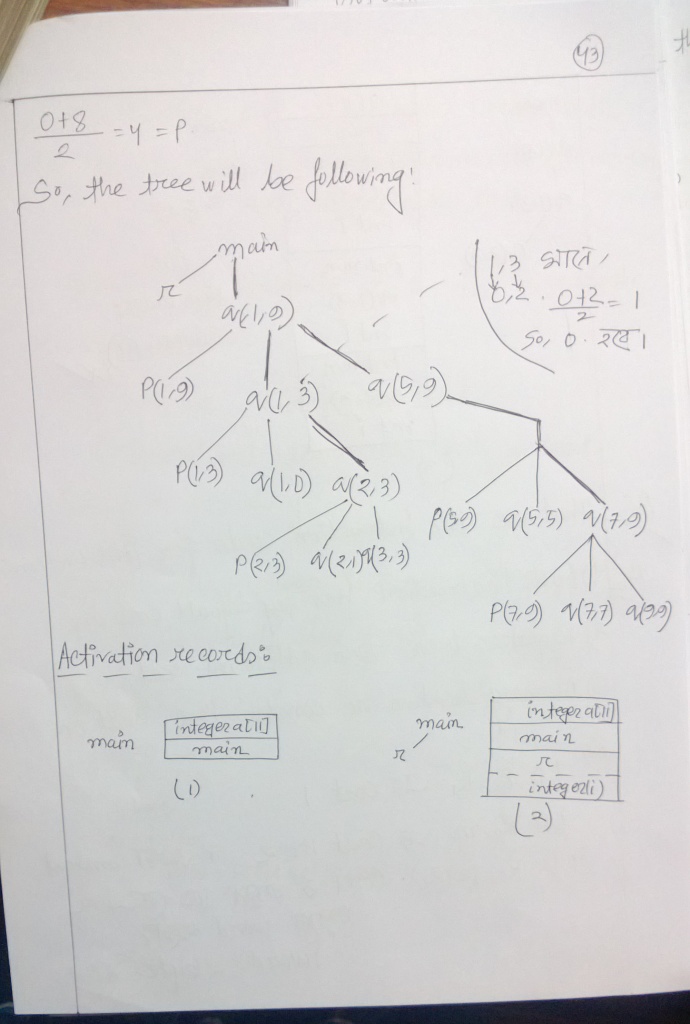 43
0+8
2
= 4 = P
So, the tree will be following:
main
r
q(1,9)
1,3 মানে,
0,2. 0+2/2 = 1
So, 0. হবে।
P(1,9) q(1,3) q(5,9)
P(1,3) q(1,0) q(2,3)
P(5,9) q(5,5) q(7,9)
P(2,3) q(2,1) q(3,3)
P(7,9) q(7,7) q(9,9)
Activation records:
main
integer a[11]
main
(1)
main
r
integer a[11]
main
r
integer(i)
(2)